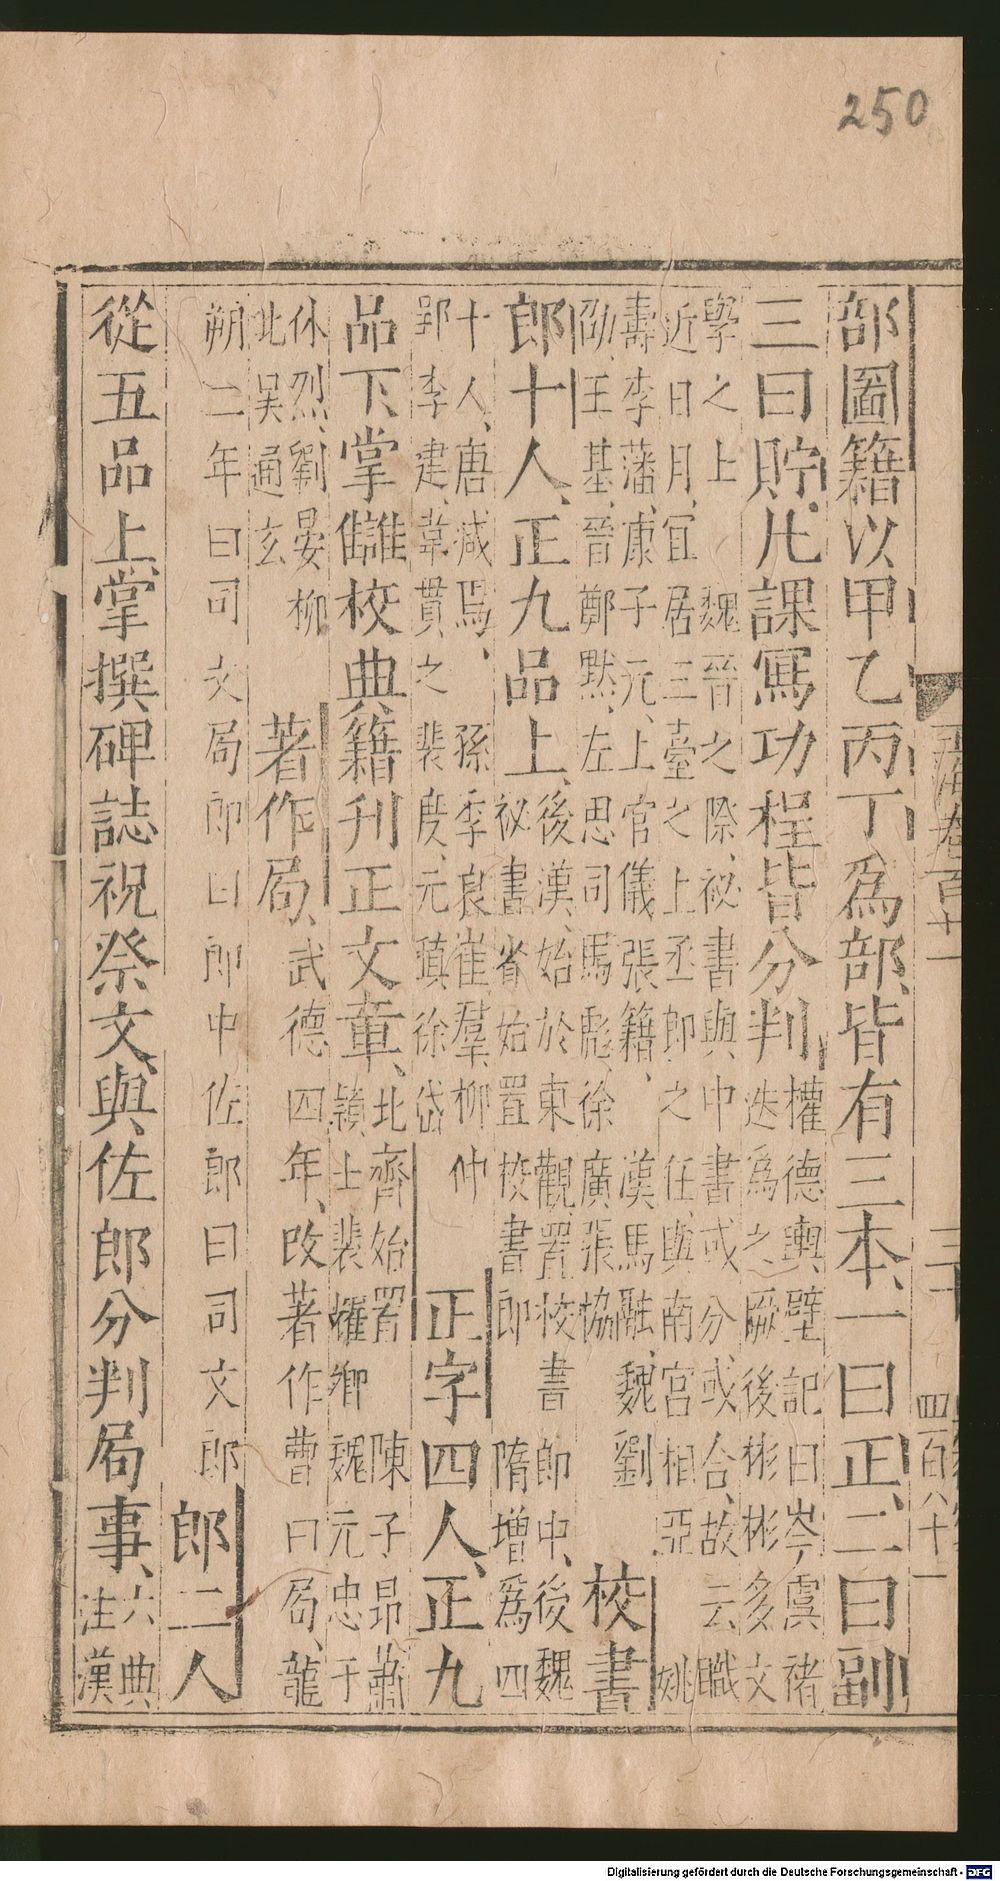 250
玉海卷百十一 三十 四百八十一
部圖籍以甲乙丙丁爲部、皆有三本、一曰正、二曰副
三曰貯、凡課寫功程皆分判
權德輿壁記曰岑虞褚
迭爲之厥後彬彬多文
學之上 魏晉之際、祕書與中書或分、或合、故云職
近日月、宜居三臺之上丞郎之任、與南宮相亞 姚
壽李藩、康子元、上官儀、張籍、 漢馬融、魏劉
劭、王基、晉鄭默、左思司馬彪、徐廣張協
校書
郎十人、正九品上、
後漢、始於東觀置校書郎中、後魏
祕書省始置校書郎 隋增爲四
十人、唐減焉、 孫季良崔羣柳仲
郢、李建、韋貫之裴度、元稹徐岱
正字四人、正九
品下、掌讎校典籍刊正文章、
北齊始置 陳子昂蕭
穎士裴耀卿魏元忠于
休烈、劉晏柳
北吳通玄
著作局、
武德四年、改著作曹曰局、龍
朔二年曰司文局郎曰郎中佐郎曰司文郎
郎二人
從五品上、掌撰碑誌祝祭文、與佐郎分判局事、
六典
注漢
Digitalisierung gefördert durch die Deutsche Forschungsgemeinschaft - DFG